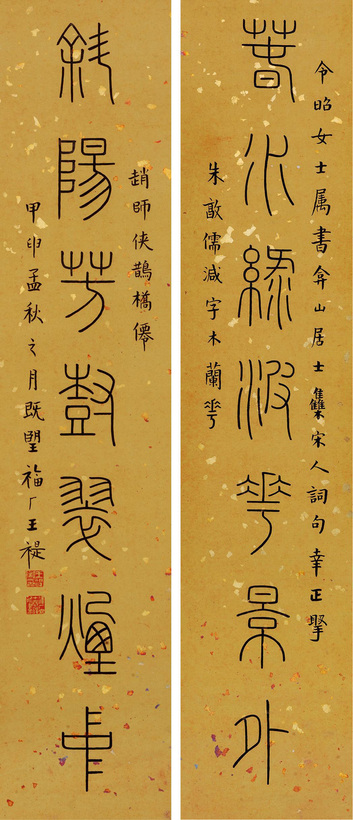 令昭女士属書弇山居士雧宋人詞句幸正擘
萅水綠波華景外
朱敦儒減字木蘭華
趙師俠鵲橋僊
斜陽芳尌翠煙中
甲申孟秋之月既朢福厂王禔